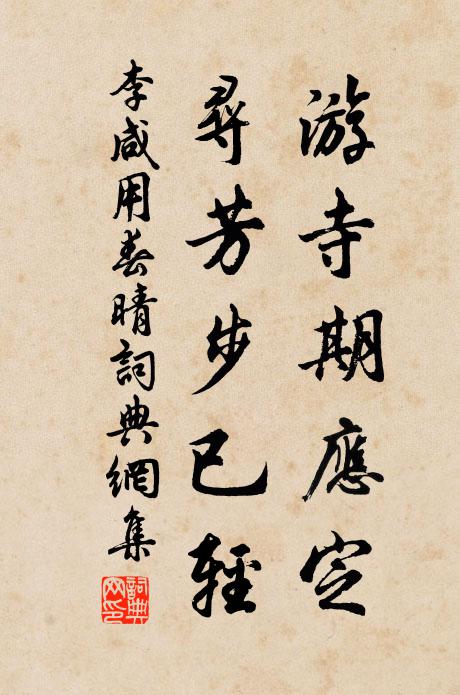 游寺期應定
尋芳步已輕
李咸用春晴詞典網集
詞典網印